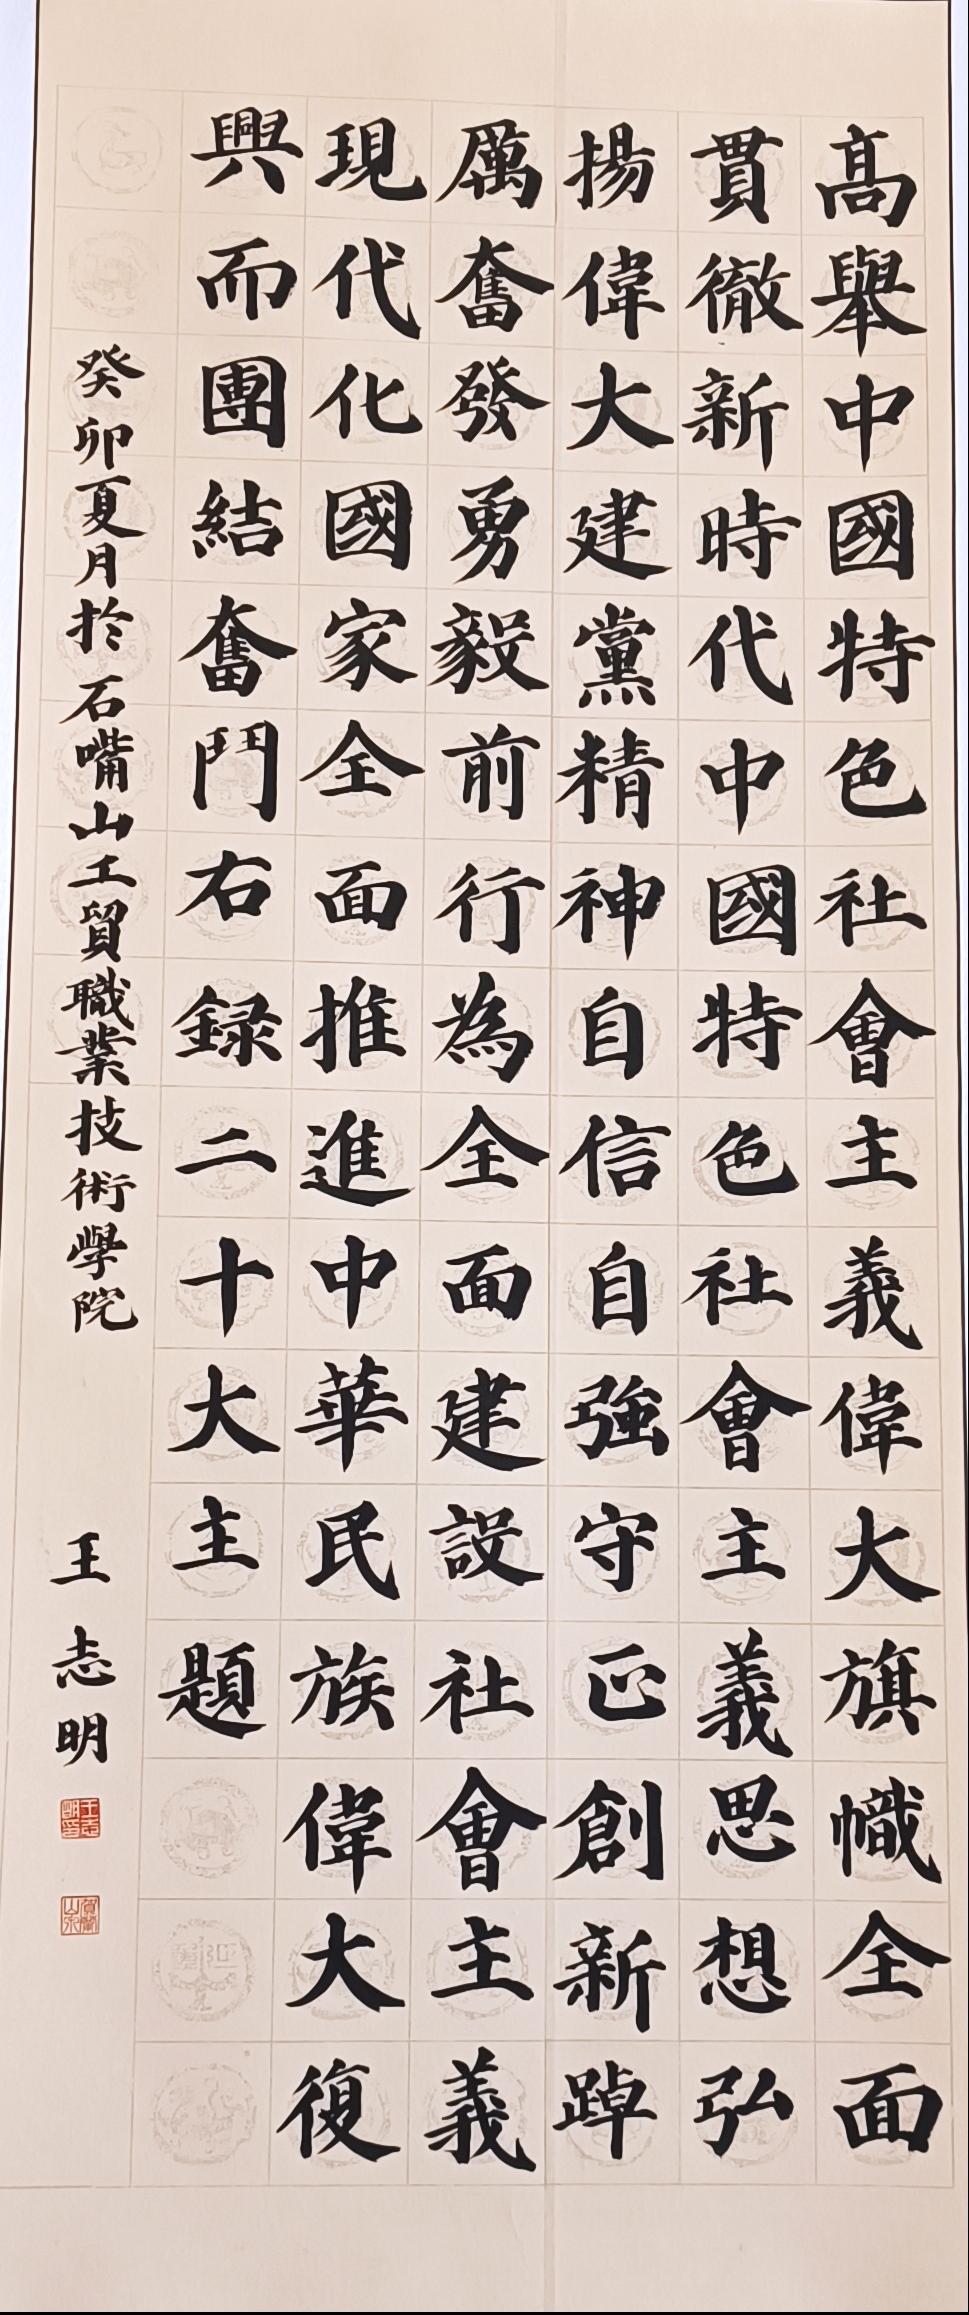 髙舉中國特色社會主義偉大旗幟全面
貫徹新時代中國特色社會主義思想弘
揚偉大建黨精神自信自強守正創新踔
厲奮發勇毅前行為全面建設社會主義
現代化國家全面推進中華民族偉大復
興而團結奮鬥右録二十大主題
癸卯夏月於石嘴山工貿職業技術學院
王志明